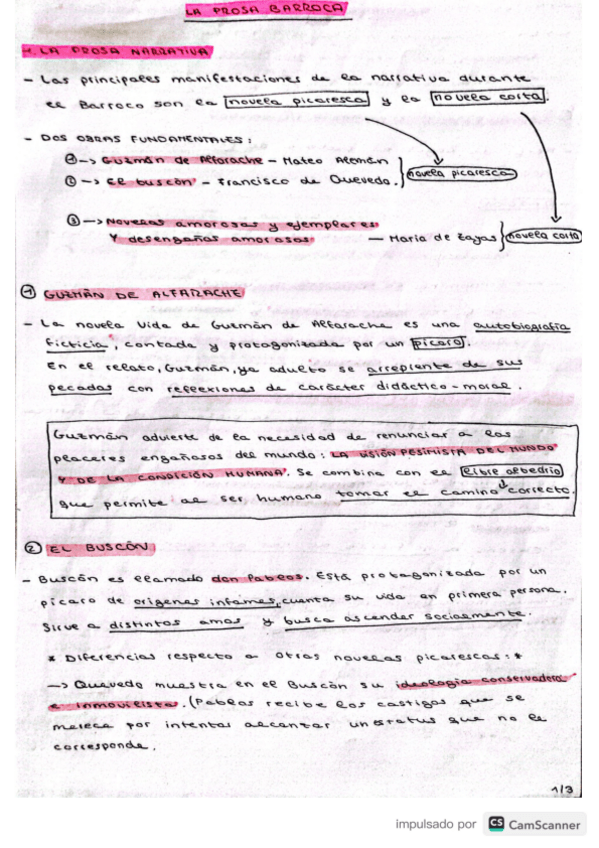 LA PROSA BARROCA
1. LA PROSA NARRATIVA
- Las principales manifestaciones de la narrativa durante
el Barroco son la novela picaresca y la novela corta.
- DOS OBRAS FUNDAMENTALES:
① -> Guzmán de Alfarache - Mateo Alemán
② -> El buscón - Francisco de Quevedo.
novela picaresca
③ -> Novelas amorosas y ejemplares
Y desengaños amorosos - María de Zayas
novela corta
① GUZMÁN DE ALFARACHE
- La novela Vida de Guzmán de Alfarache es una autobiografía
ficticia, contada y protagonizada por un pícaro.
En el relato, Guzmán, ya adulto se arrepiente de sus
pecados con reflexiones de carácter didáctico-moral.
Guzmán advierte de la necesidad de renunciar a los
placeres engañosos del mundo: LA VISIÓN PESIMISTA DEL MUNDO
Y DE LA CONDICIÓN HUMANA. Se combina con el libre albedrío
que permite al ser humano tomar el camino correcto.
② EL BUSCÓN
- Buscón es llamado don Pablos. Está protagonizada por un
pícaro de orígenes infames, cuenta su vida en primera persona.
Sirve a distintos amos y busca ascender socialmente.
* Diferencias respecto a otras novelas picarescas: *
-> Quevedo muestra en el Buscón su ideología conservadora
e inmovilista. (Pablos recibe los castigos que se
merece por intentar alcanzar un status que no le
corresponde.
1/3
impulsado por CS CamScanner